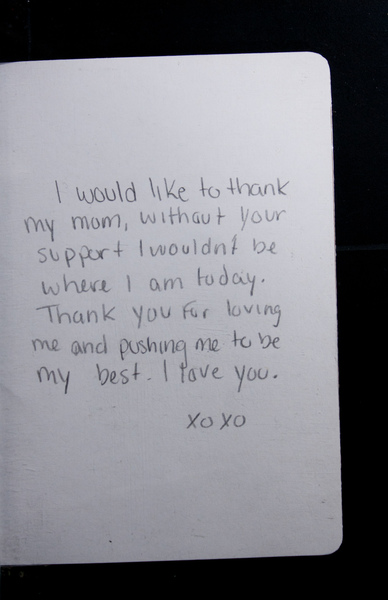 I would like to thank
my mom, without your
support I wouldn't be
where I am today.
Thank you for loving
me and pushing me to be
my best. I love you.
xoxo